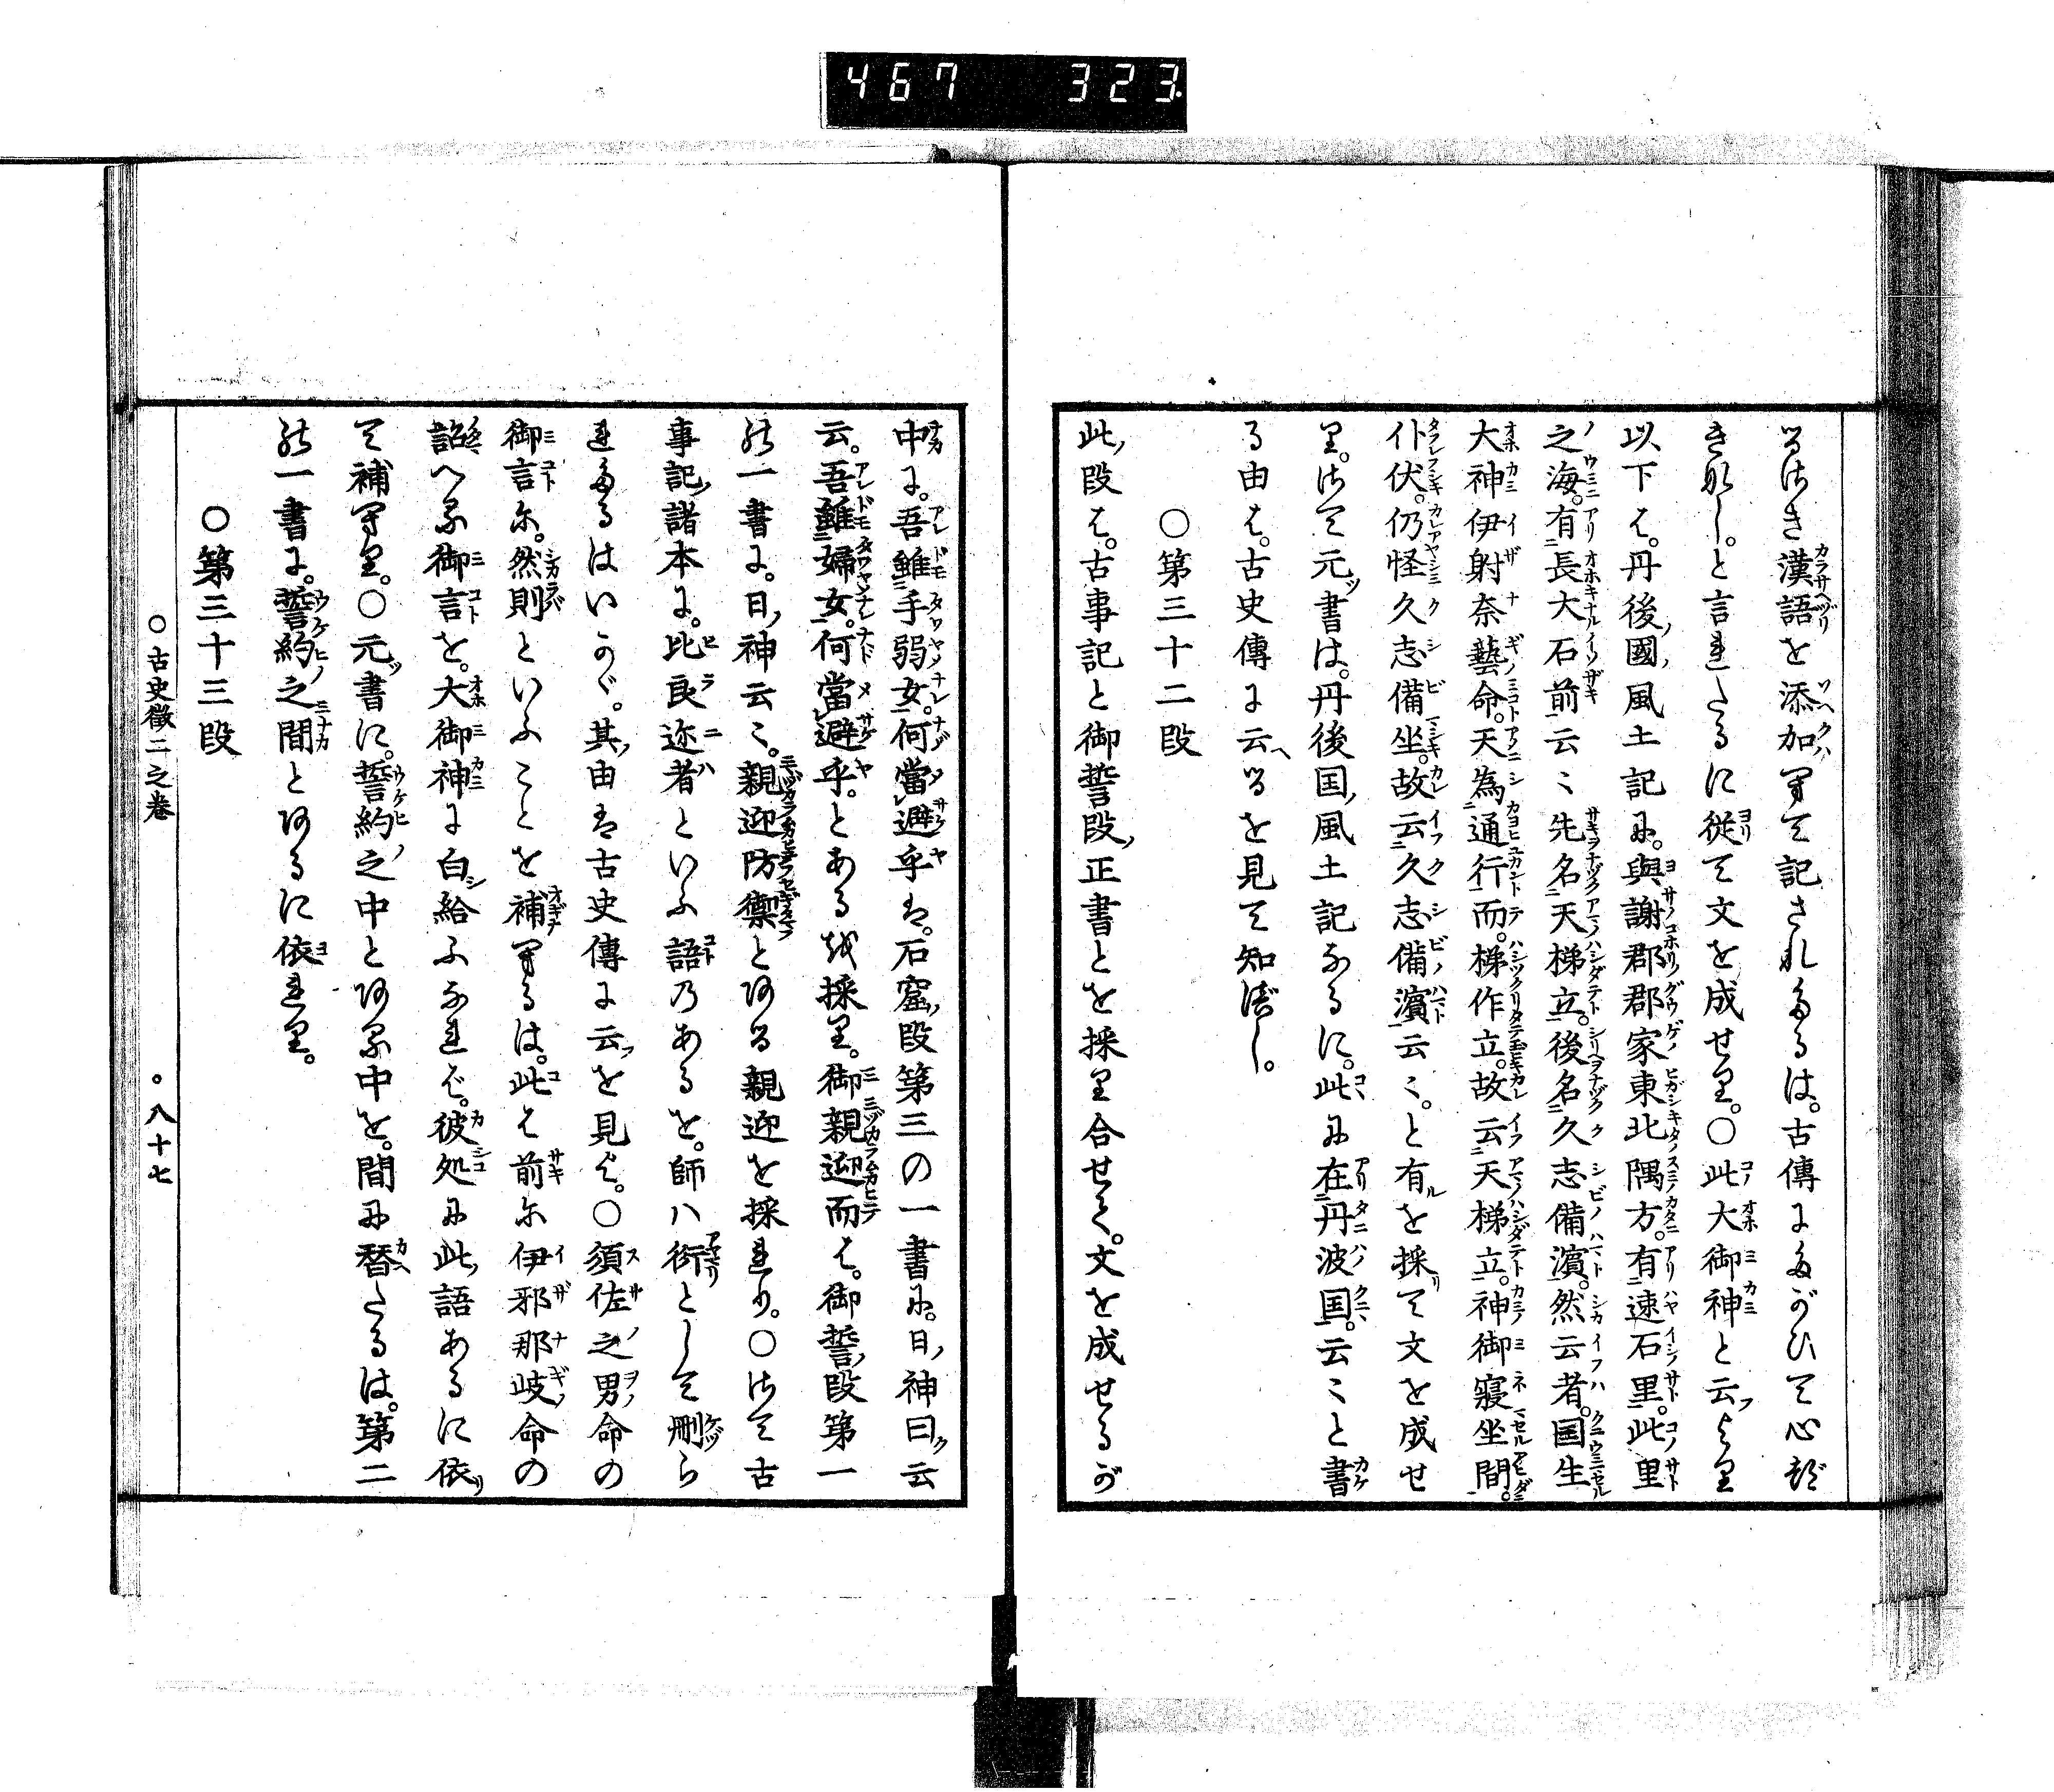 467 323
るはき漢語を添加へて記されたるは。古傳にたがひて心ů
きなし。と言れたるに従て文を成せり。〇此大御神と云より
以下は。丹後國風土記に。與謝郡郡家東北隅方。有速石里。此里
之海。有長大石前云〻先名天梯立。後名久志備濱。然云者。国生
大神伊射奈藝命。天為通行而。梯作立。故云天梯立。神御寝坐間。
仆伏。仍怪久志備坐。故云久志備濱云〻。と有を採て文を成せ
り。はて元書は。丹後国風土記なるに。此に在丹波国。云〻と書
る由は。古史傳に云へるを見て知べし。
〇第三十二段
此段は。古事記と御誓段正書とを採り合せて。文を成せるが
中に。吾雖手弱女。何當避乎は。石窟段第三の一書に。日神曰云
云。吾雖婦女。何當避乎。とあるを採り。御親迎而は。御誓段第一
の一書に。日神云〻。親迎防禦とある親迎を採れり。〇はて古
事記諸本に。比良迩者といふ語のあるを。師ハ衍として刪ら
れたるはいかゞ。其由は古史傳に云を見よ。〇須佐之男命の
御言に。然則といふことを補へるは。此は前に伊邪那岐命の
詔へる御言を。大御神に白給ふなれば。彼処に此語あるに依
て補へり。〇元書に。誓約之中とある中を。間に替たるは。第二
の一書に。誓約之間とあるに依れり。
〇第三十三段
〇古史徴二之巻
〇八十七